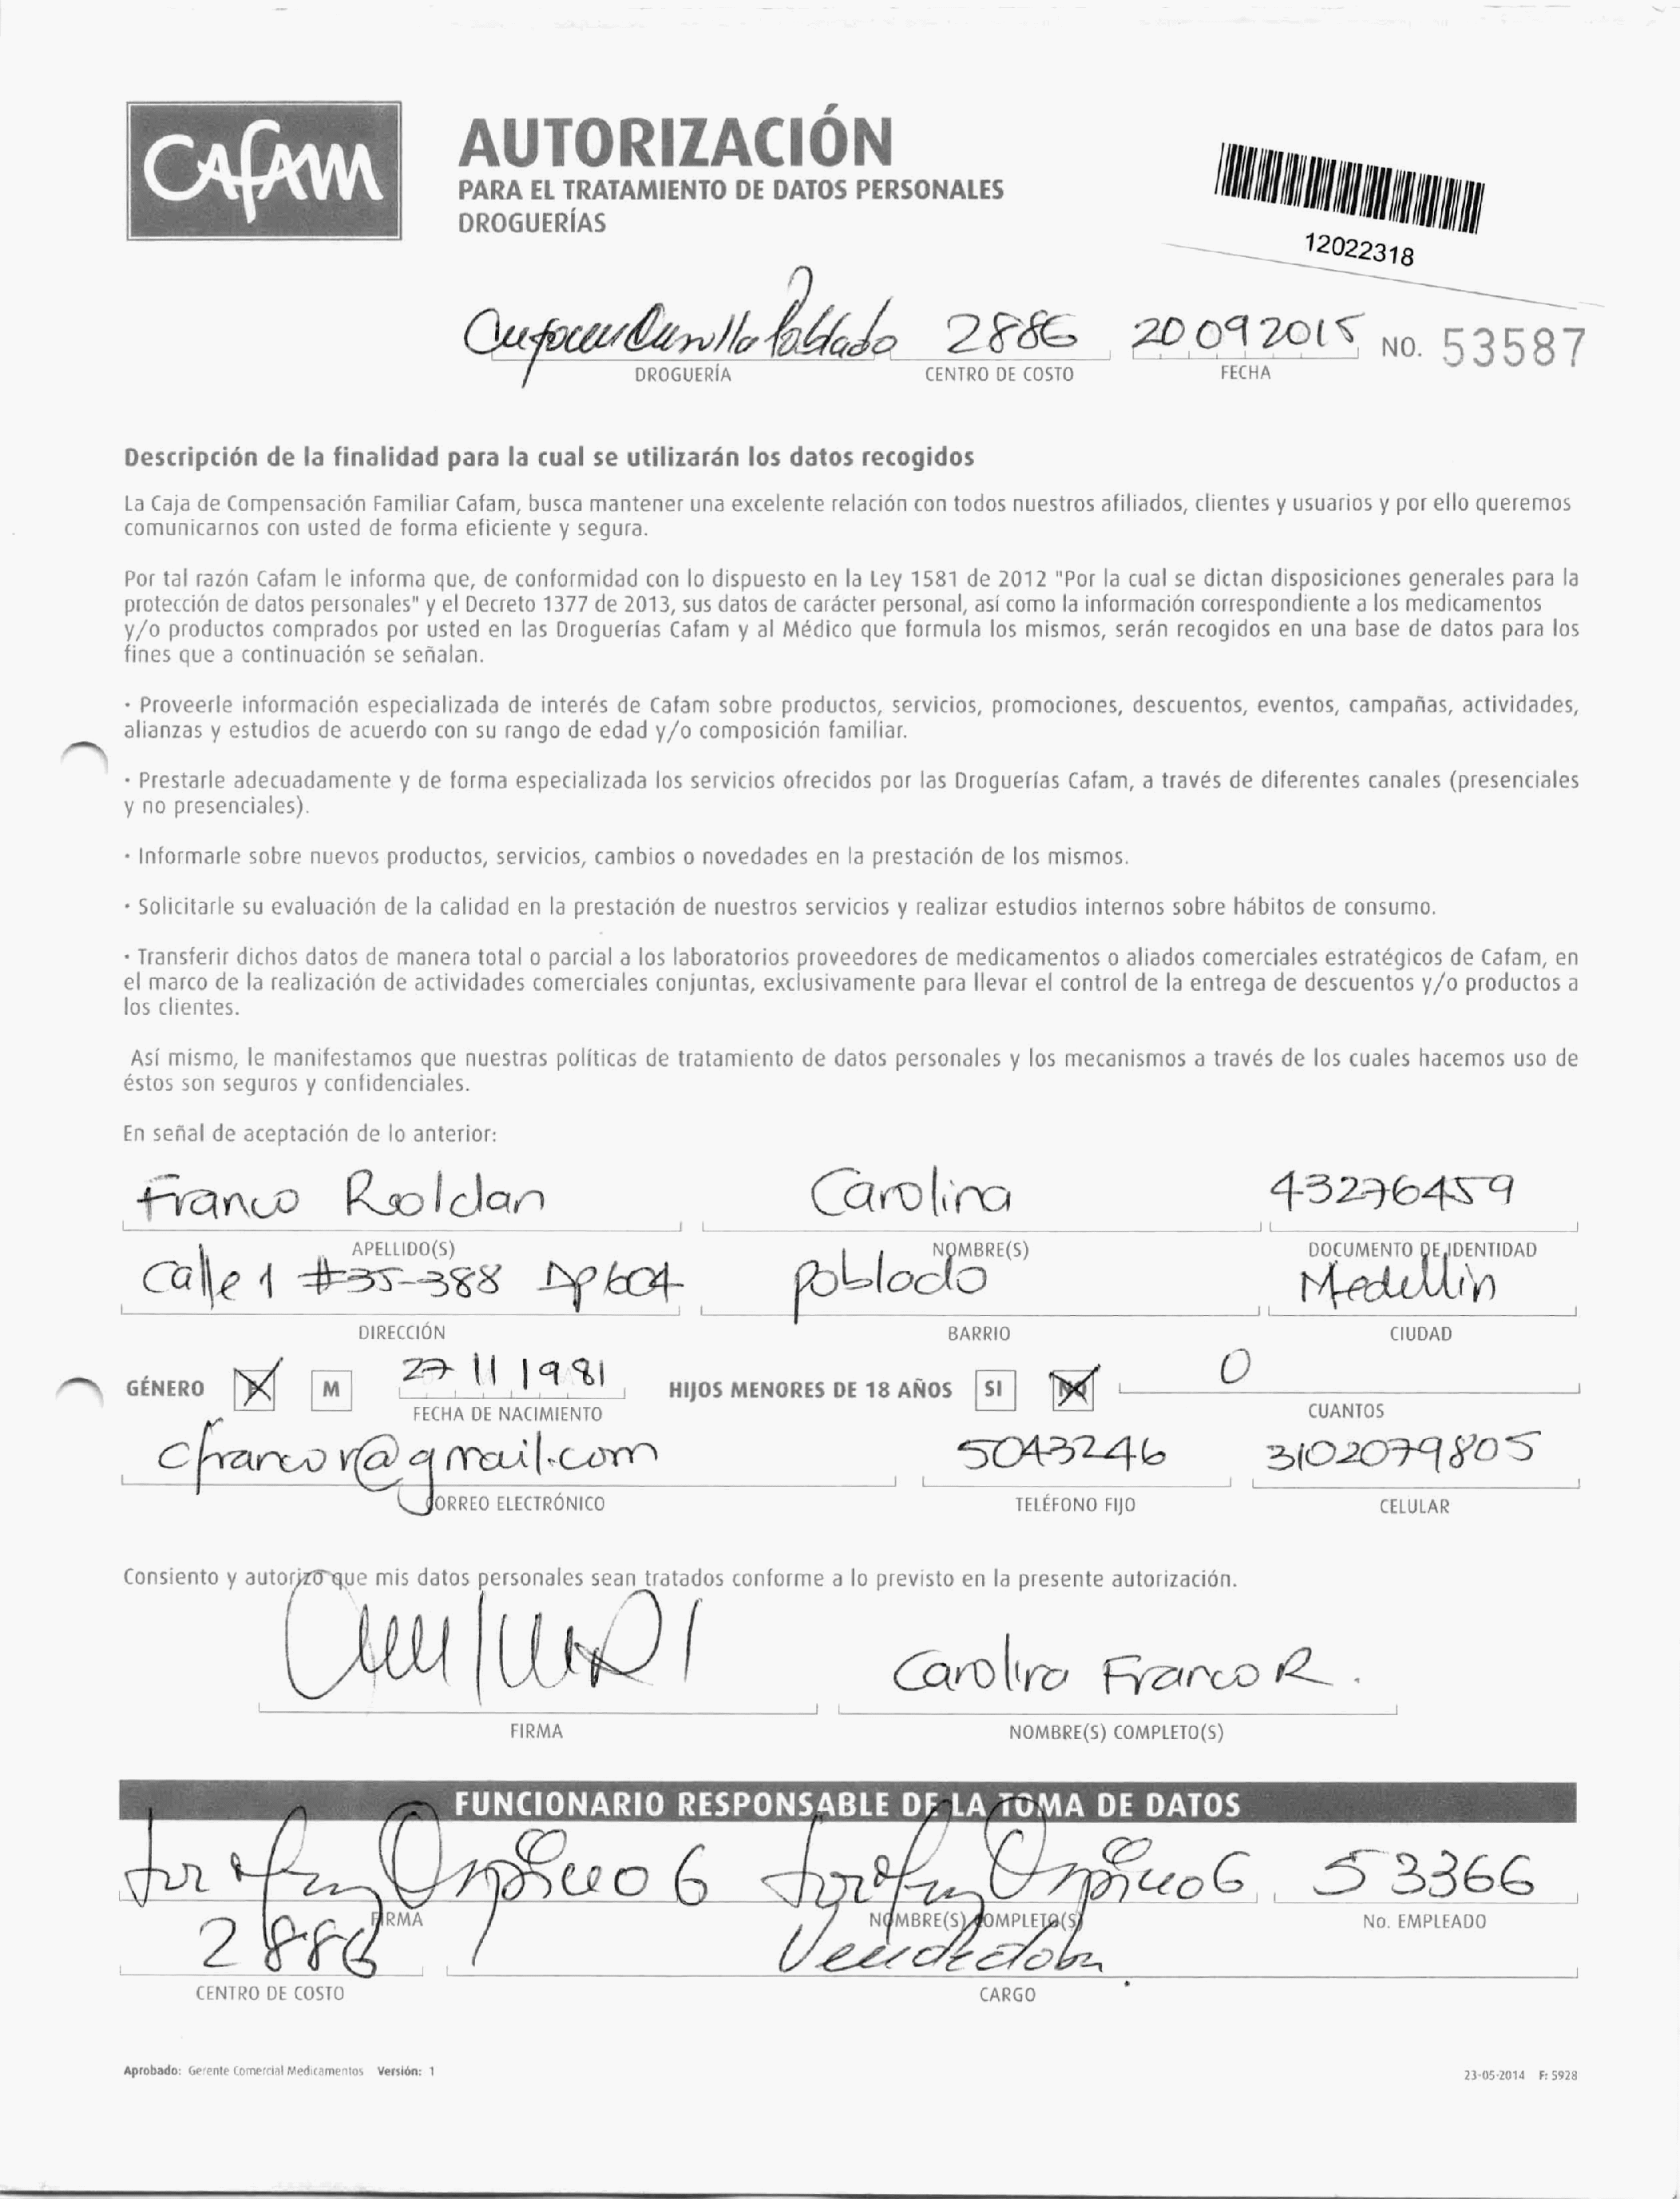 CAFAM
AUTORIZACIÓN
PARA EL TRATAMIENTO DE DATOS PERSONALES
DROGUERÍAS
12022318
Poblado 2886 20 09 2015 NO. 53587
DROGUERÍA CENTRO DE COSTO FECHA
Descripción de la finalidad para la cual se utilizarán los datos recogidos
La Caja de Compensación Familiar Cafam, busca mantener una excelente relación con todos nuestros afiliados, clientes y usuarios y por ello queremos
comunicarnos con usted de forma eficiente y segura.
Por tal razón Cafam le informa que, de conformidad con lo dispuesto en la Ley 1581 de 2012 "Por la cual se dictan disposiciones generales para la
protección de datos personales" y el Decreto 1377 de 2013, sus datos de carácter personal, así como la información correspondiente a los medicamentos
y/o productos comprados por usted en las Droguerías Cafam y al Médico que formula los mismos, serán recogidos en una base de datos para los
fines que a continuación se señalan.
· Proveerle información especializada de interés de Cafam sobre productos, servicios, promociones, descuentos, eventos, campañas, actividades,
alianzas y estudios de acuerdo con su rango de edad y/o composición familiar.
· Prestarle adecuadamente y de forma especializada los servicios ofrecidos por las Droguerías Cafam, a través de diferentes canales (presenciales
y no presenciales).
· Informarle sobre nuevos productos, servicios, cambios o novedades en la prestación de los mismos.
· Solicitarle su evaluación de la calidad en la prestación de nuestros servicios y realizar estudios internos sobre hábitos de consumo.
· Transferir dichos datos de manera total o parcial a los laboratorios proveedores de medicamentos o aliados comerciales estratégicos de Cafam, en
el marco de la realización de actividades comerciales conjuntas, exclusivamente para llevar el control de la entrega de descuentos y/o productos a
los clientes.
Así mismo, le manifestamos que nuestras políticas de tratamiento de datos personales y los mecanismos a través de los cuales hacemos uso de
éstos son seguros y confidenciales.
En señal de aceptación de lo anterior:
Franco Roldan Carolina 43276459
APELLIDO(S) NOMBRE(S) DOCUMENTO DE IDENTIDAD
Calle 1 #35-388 Ap 604 Poblado Medellin
DIRECCIÓN BARRIO CIUDAD
GÉNERO M 27 11 1981 HIJOS MENORES DE 18 AÑOS SI NO 0
FECHA DE NACIMIENTO CUANTOS
cfrancor@gmail.com 5043246 3102079805
CORREO ELECTRÓNICO TELÉFONO FIJO CELULAR
Consiento y autorizo que mis datos personales sean tratados conforme a lo previsto en la presente autorización.
Carolina Franco R.
FIRMA NOMBRE(S) COMPLETO(S)
FUNCIONARIO RESPONSABLE DE LA TOMA DE DATOS
53366
FIRMA NOMBRE(S) COMPLETO(S) No. EMPLEADO
2886 Vendedora
CENTRO DE COSTO CARGO
Aprobado: Gerente Comercial Medicamentos Versión: 1 23-05-2014 F: 5928